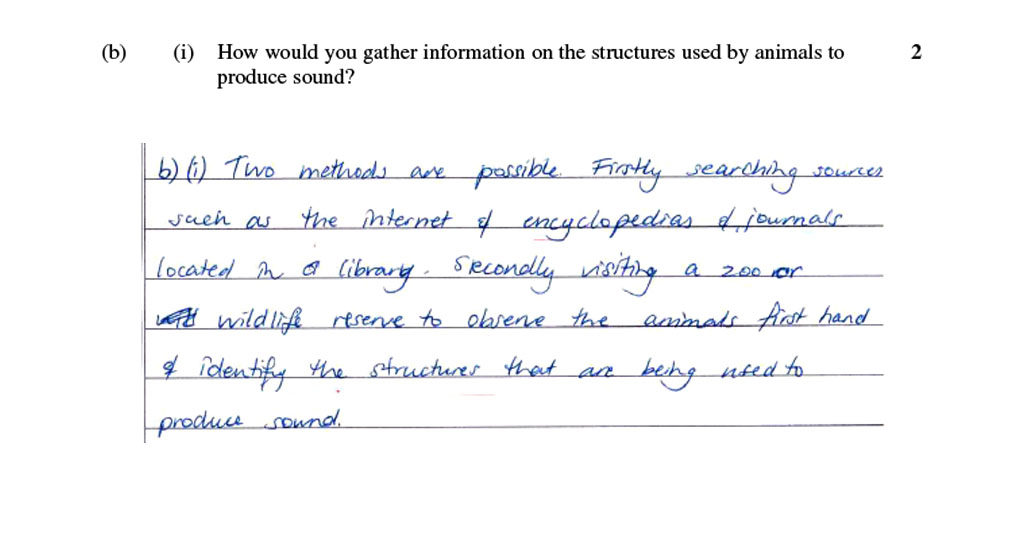 (b) (i) How would you gather information on the structures used by animals to 2
produce sound?
b) (i) Two methods are possible. Firstly searching sources
such as the internet & encyclopedias & journals
located in a library. Secondly visiting a zoo or
wildlife reserve to observe the animals first hand
& identify the structures that are being used to
produce sound.